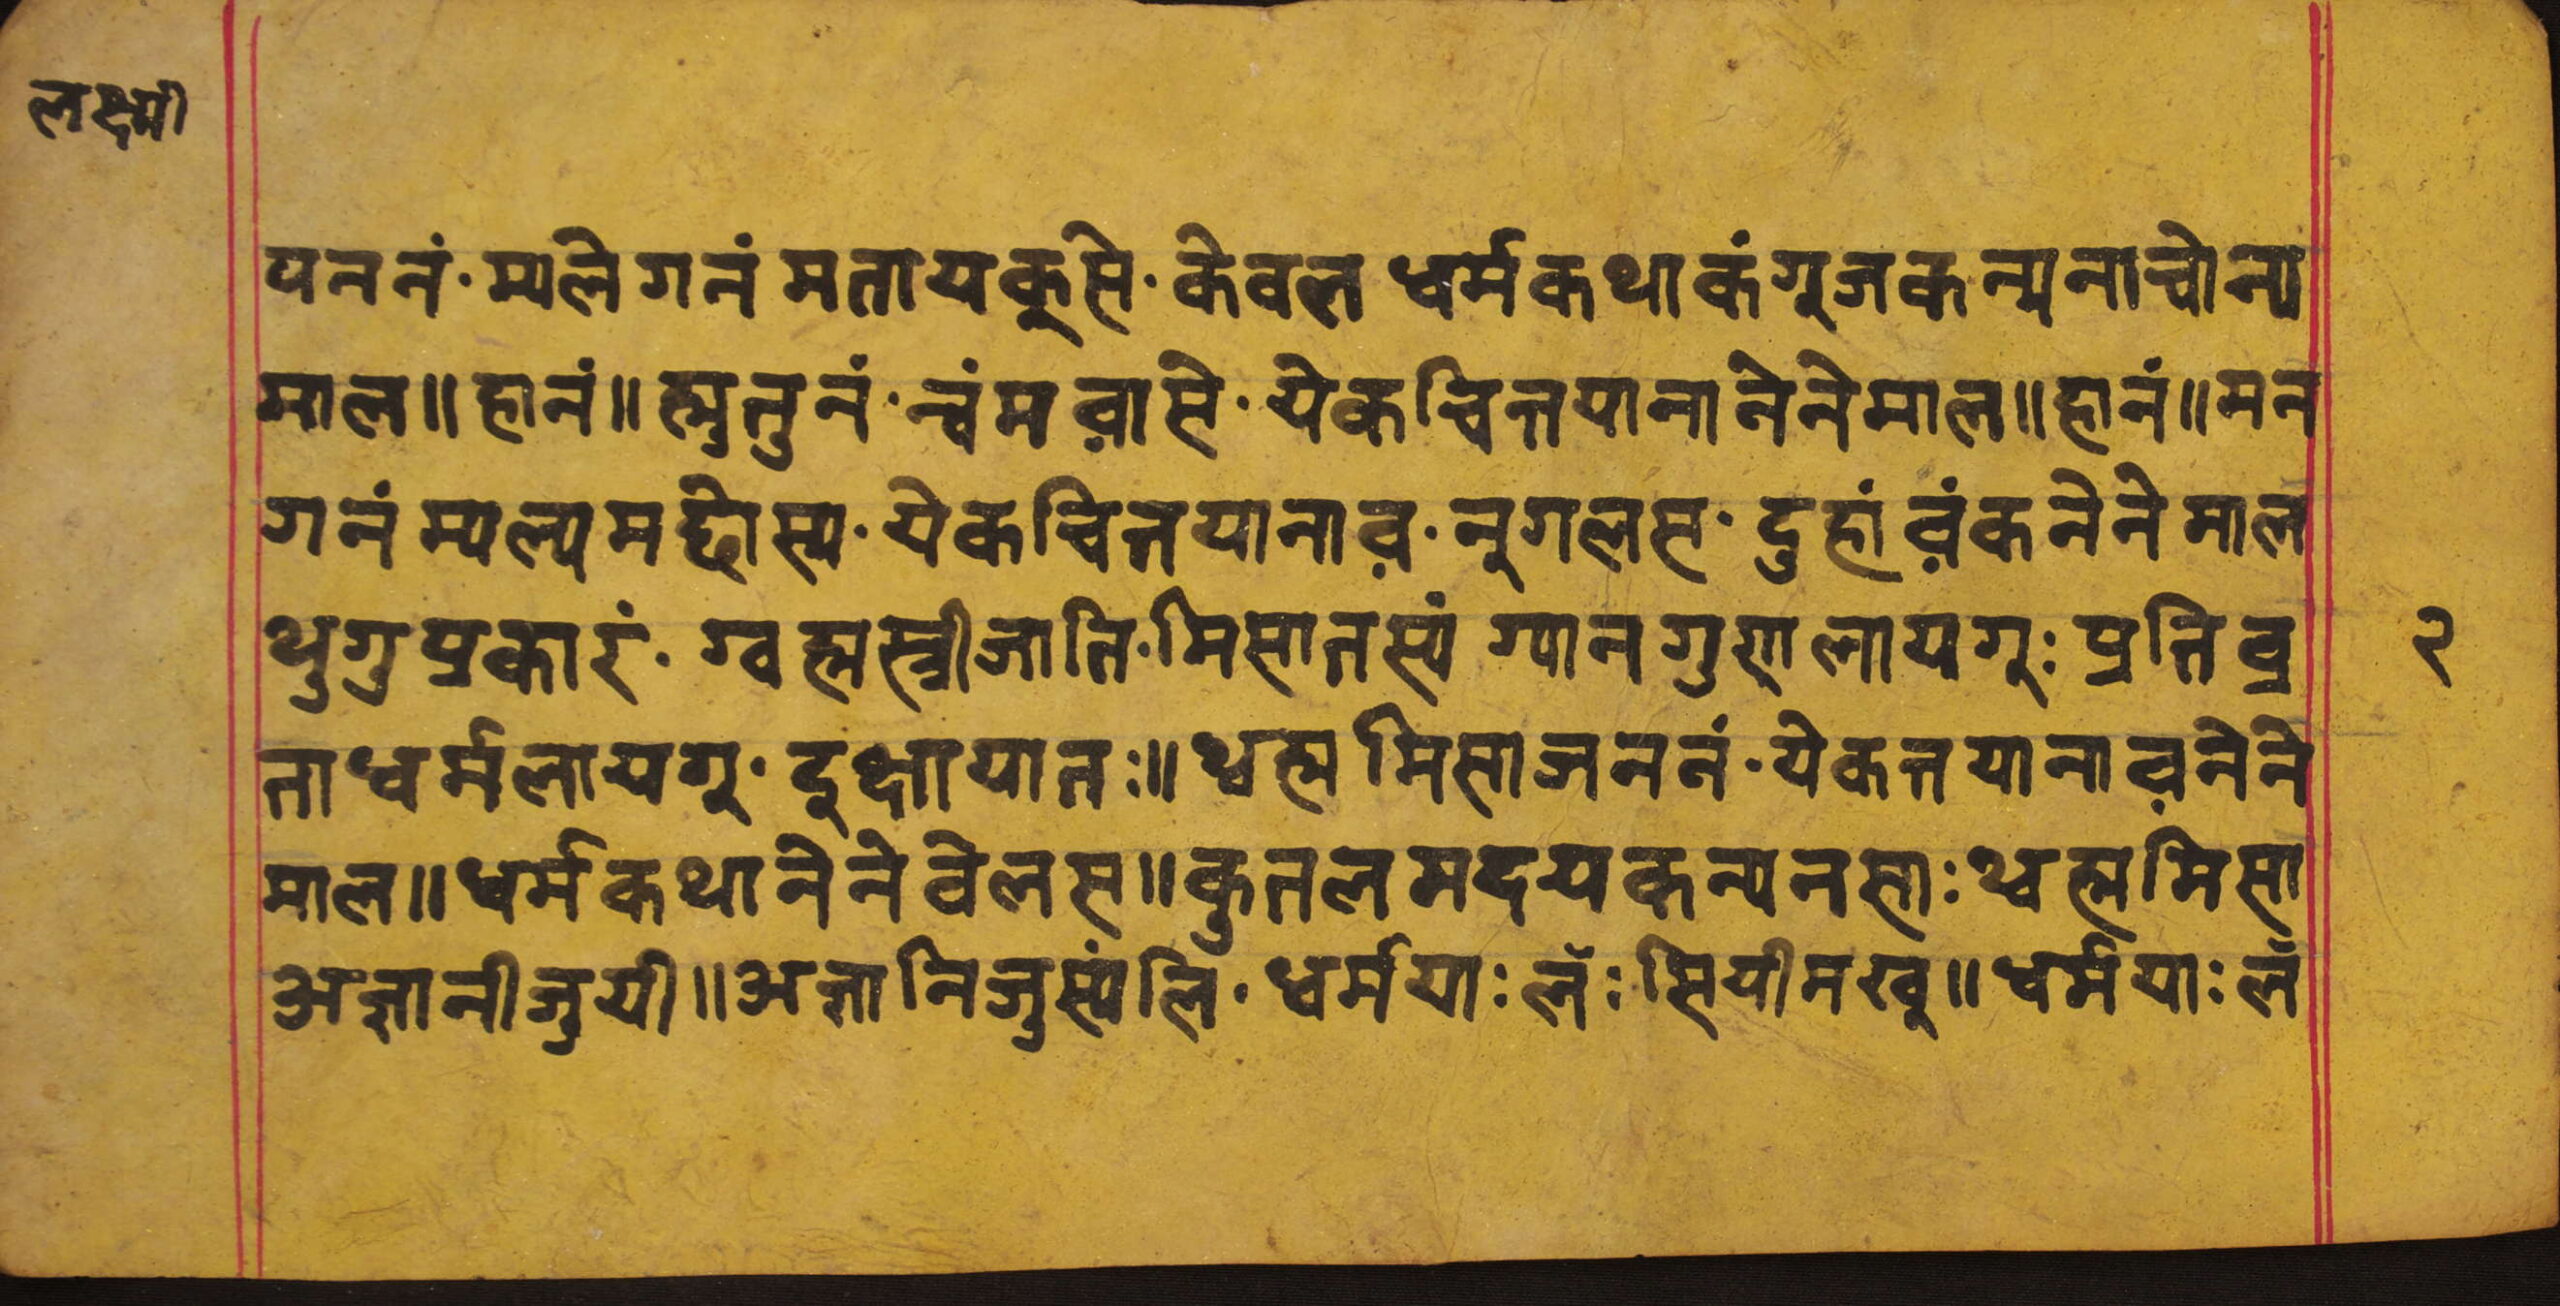 लक्ष्मी
पननं॰ म्यलेगनं मतायकूसे॰ केवल धर्मकथाकंगूजक न्यनाच्चोन्य
माल॥ हानं॥ ह्मुतुनं॰ न्वंमव़ासे॰ येकचित्तयाना नेनेमाल॥ हानं॥ मन
गनं म्यल्यमछोस्य॰ येकचित्तयानाव़॰ नूगलस॰ दुहांव़ंक नेनेमाल
थुगुप्रकारं॰ ग्वह्मस्त्रीजाति॰ मिसातस्यं ग्यानगुणलायगूः प्रतिव्र
ताधर्मलायगू॰ दूक्षायातः॥ थ्वह्म मिसाजननं॰ येकत्तयानाव़ नेने
माल॥ धर्मकथा नेनेवेलस॥ कुतलमदयक न्यनसाः थ्वह्ममिसा
अज्ञानीजुयी॥ अज्ञानिजुस्यंलि॰ धर्मयाः लँः सियीमखू॥ धर्मयाः लँ
२